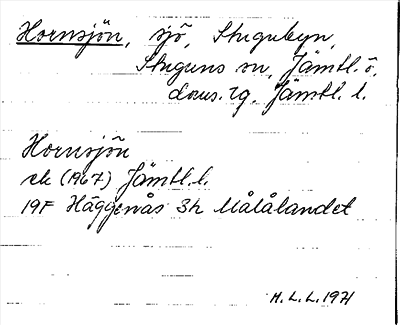 Hornsjön, sjö, Stugubyn,
Stuguns sn, Jämtl. ö.
doms. rg, Jämtl. l.
Hornsjön
ek (1967) Jämtl. l.
19F Häggenås 3h Målålandet
H.L.L. 1971